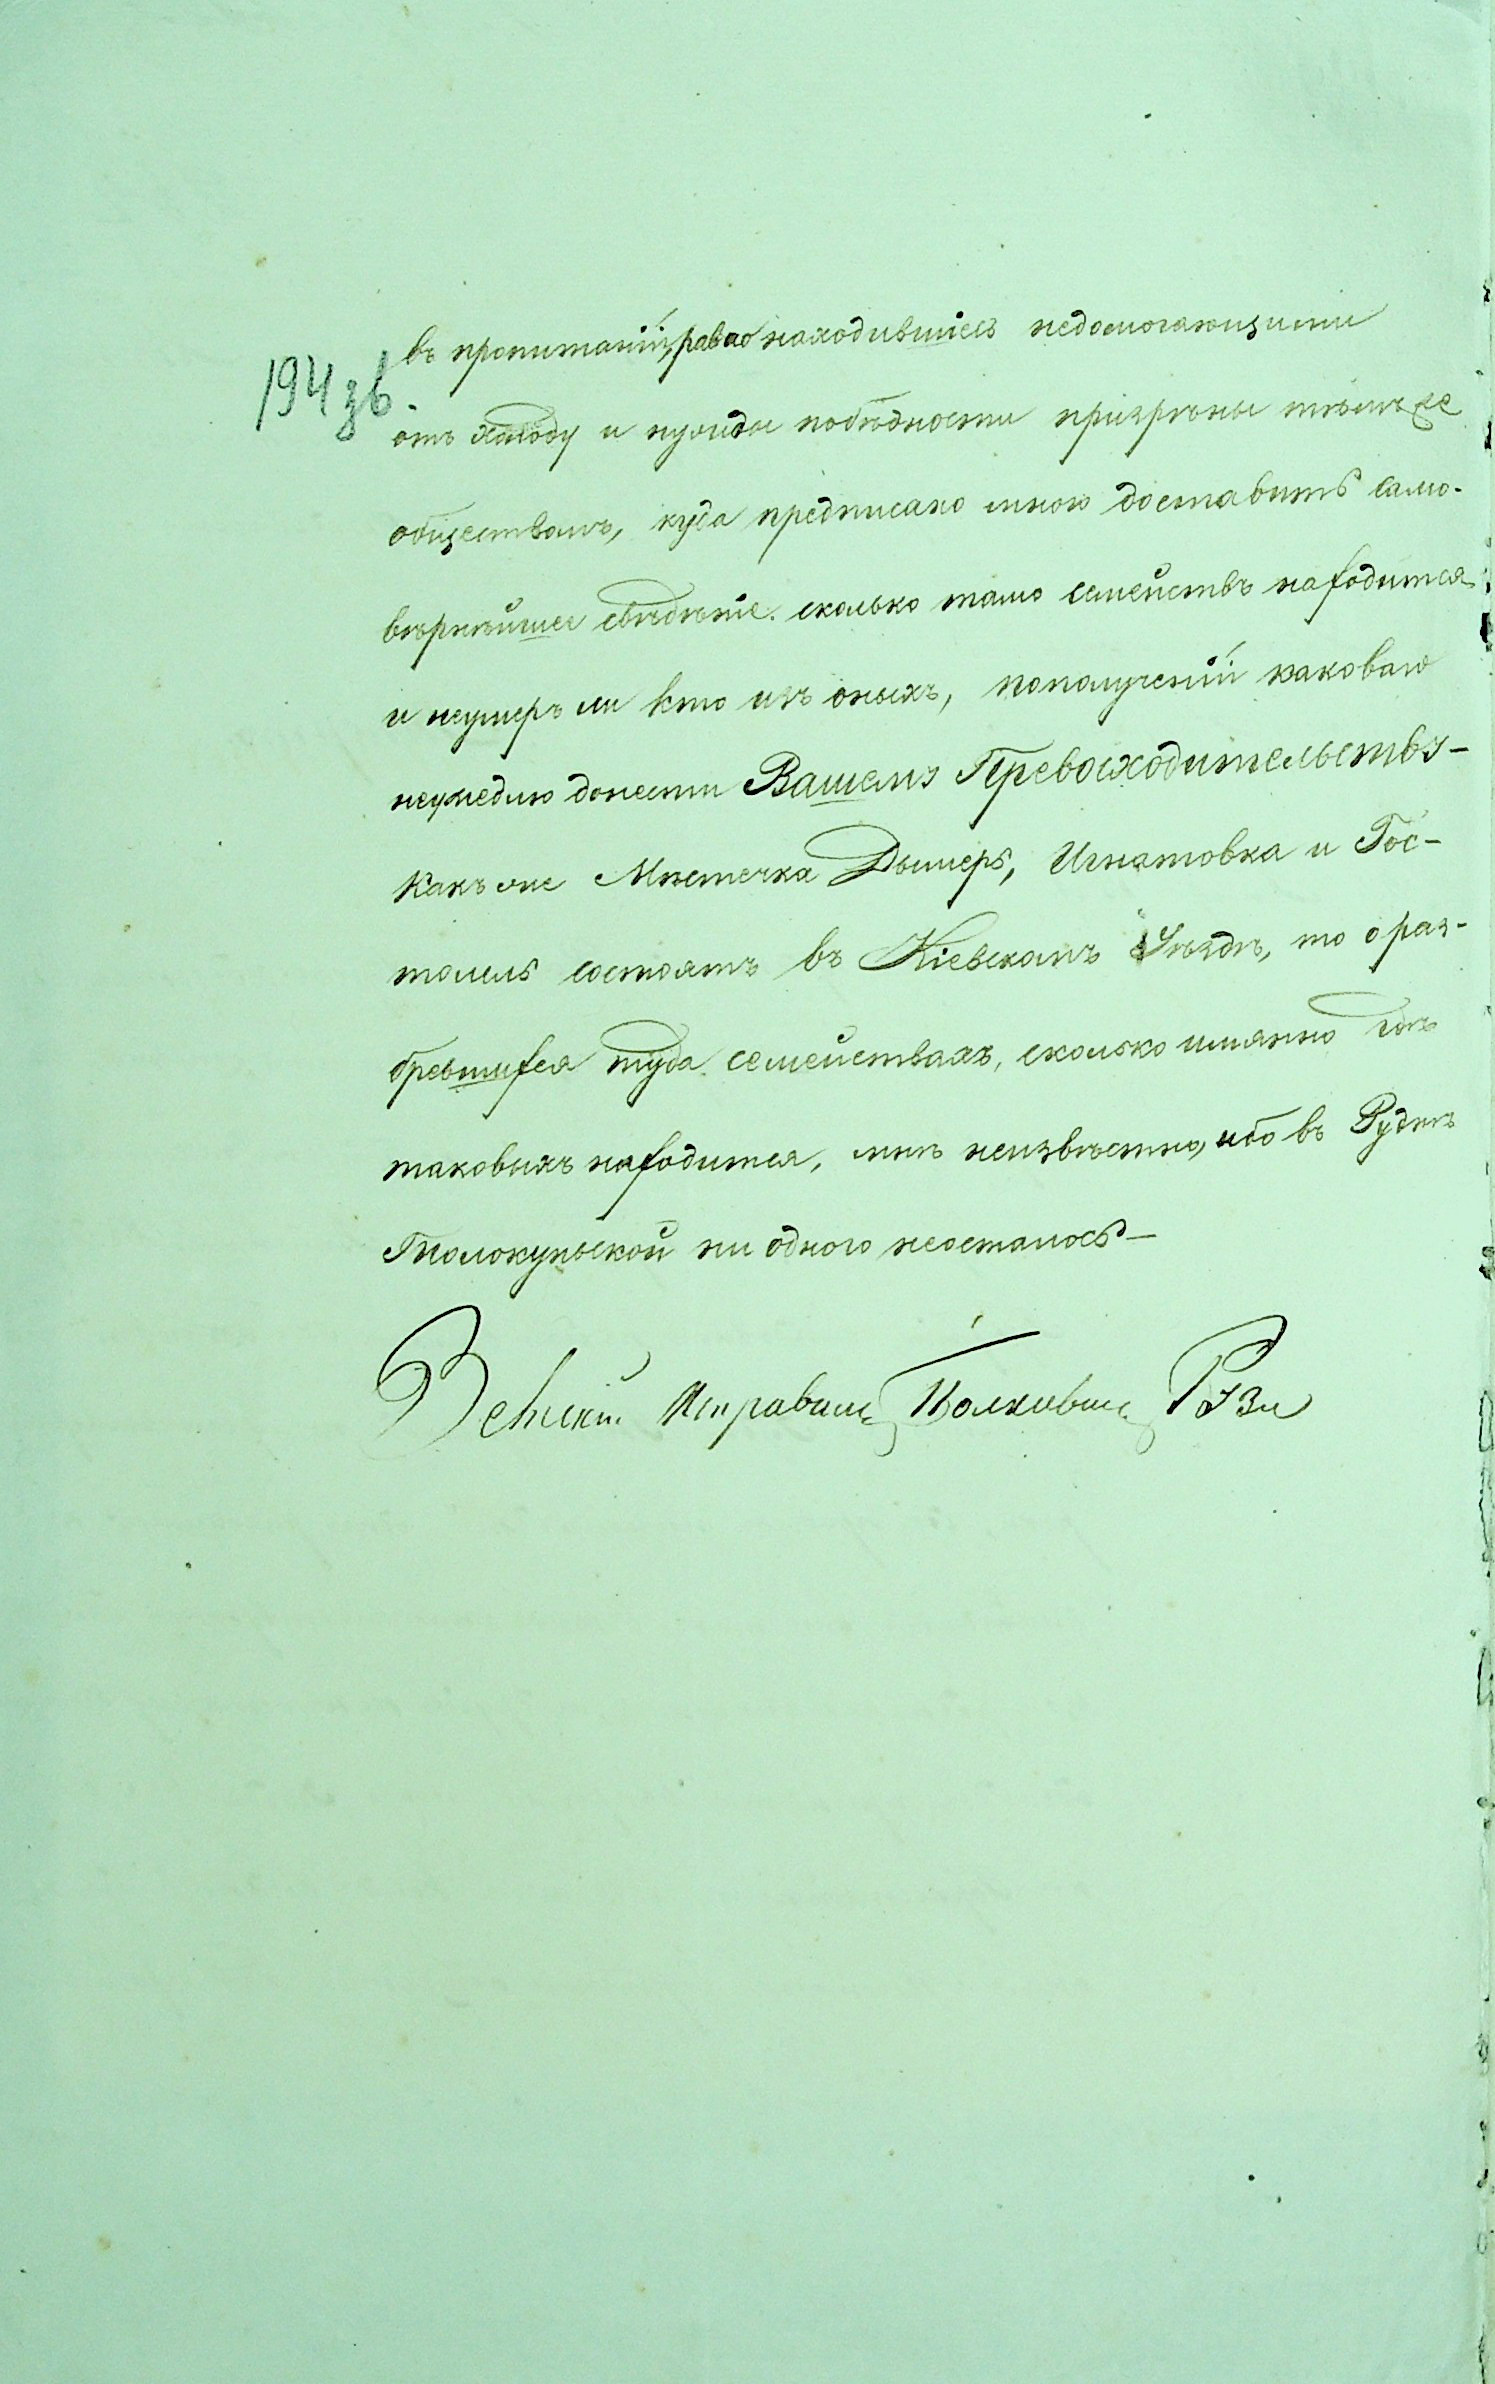 194 зв.
въ пропитаніи, равно находившіесь недомогающими
отъ холоду и нужды побѣдности призрѣны тѣмъ же
обществомъ, куда предписано мною доставить само-
вѣрнѣйшее свѣденіе. сколько тамо семействъ находится
и неумеръ ли кто изъ оныхъ, пополученіи каковаго
неумедлю донести Вашему Превосходительству –
Какъ же Мѣстечка Дымеръ, Игнатовка и Гос-
томель состоятъ въ Кіевскомъ Уѣздѣ, то о раз-
бревшихся туда семействахъ, сколько имянно гдѣ
таковыхъ находится, мнѣ неизвѣстно, ибо въ Рудкѣ
Толокунской ни одного неосталось –
Земскій Исправникъ Полковникъ